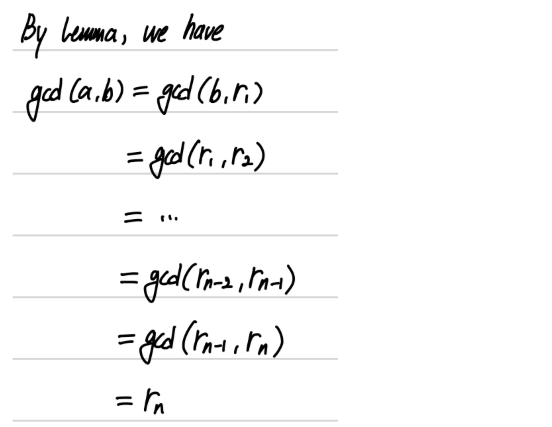 By Lemma, we have
gcd(a,b) = gcd(b,r₁)
= gcd(r₁,r₂)
= ...
= gcd(rₙ₋₂,rₙ₋₁)
= gcd(rₙ₋₁,rₙ)
= rₙ